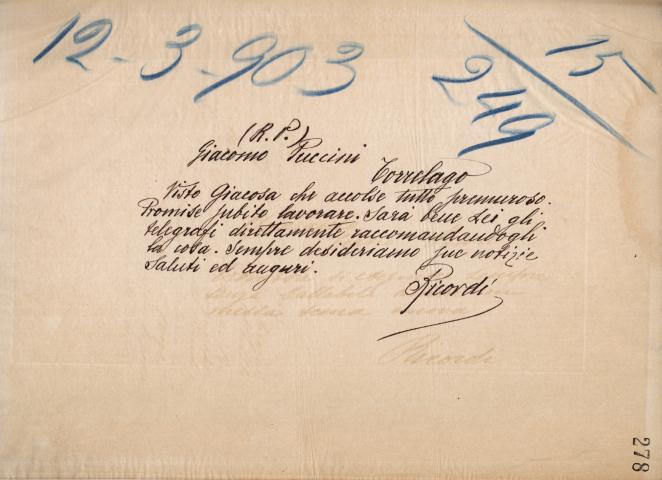 12-3-903
15
249
(R.P.)
Giacomo Puccini
Torrelago
Visto Giacosa che accolse tutto premuroso.
Promise subito lavorare. Sarà bene Lei gli
telegrafi direttamente raccomandandogli
la cosa. Sempre desideriamo sue notizie
Saluti ed auguri.
Ricordi
Ricordi
278